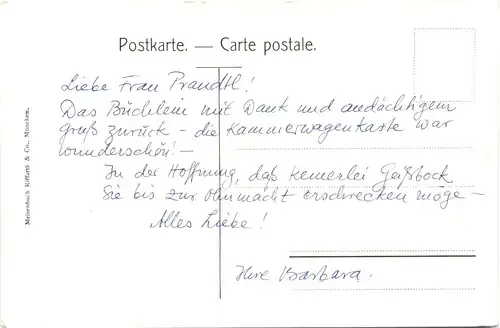 Postkarte. — Carte postale.
Liebe Frau Prandtl!
Das Büchlein mit Dank und andächtigem
gruß zurück – die Kammerwagenkarte war
wunderschön! –
In der Hoffnung, daß keinerlei Geißbock
Sie bis zur Ohnmacht erschrecken möge –
Alles Liebe!
Ihre Barbara.
Meisenbach Riffarth & Co., München.